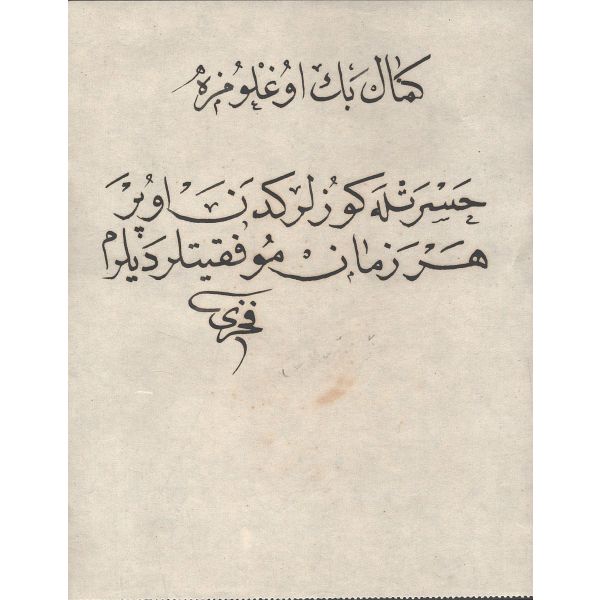 كمال بك اوغلومزه
حسرتله كوزلركدن اوپر
هر زمان موفقيتلر ديلرم
فخرى